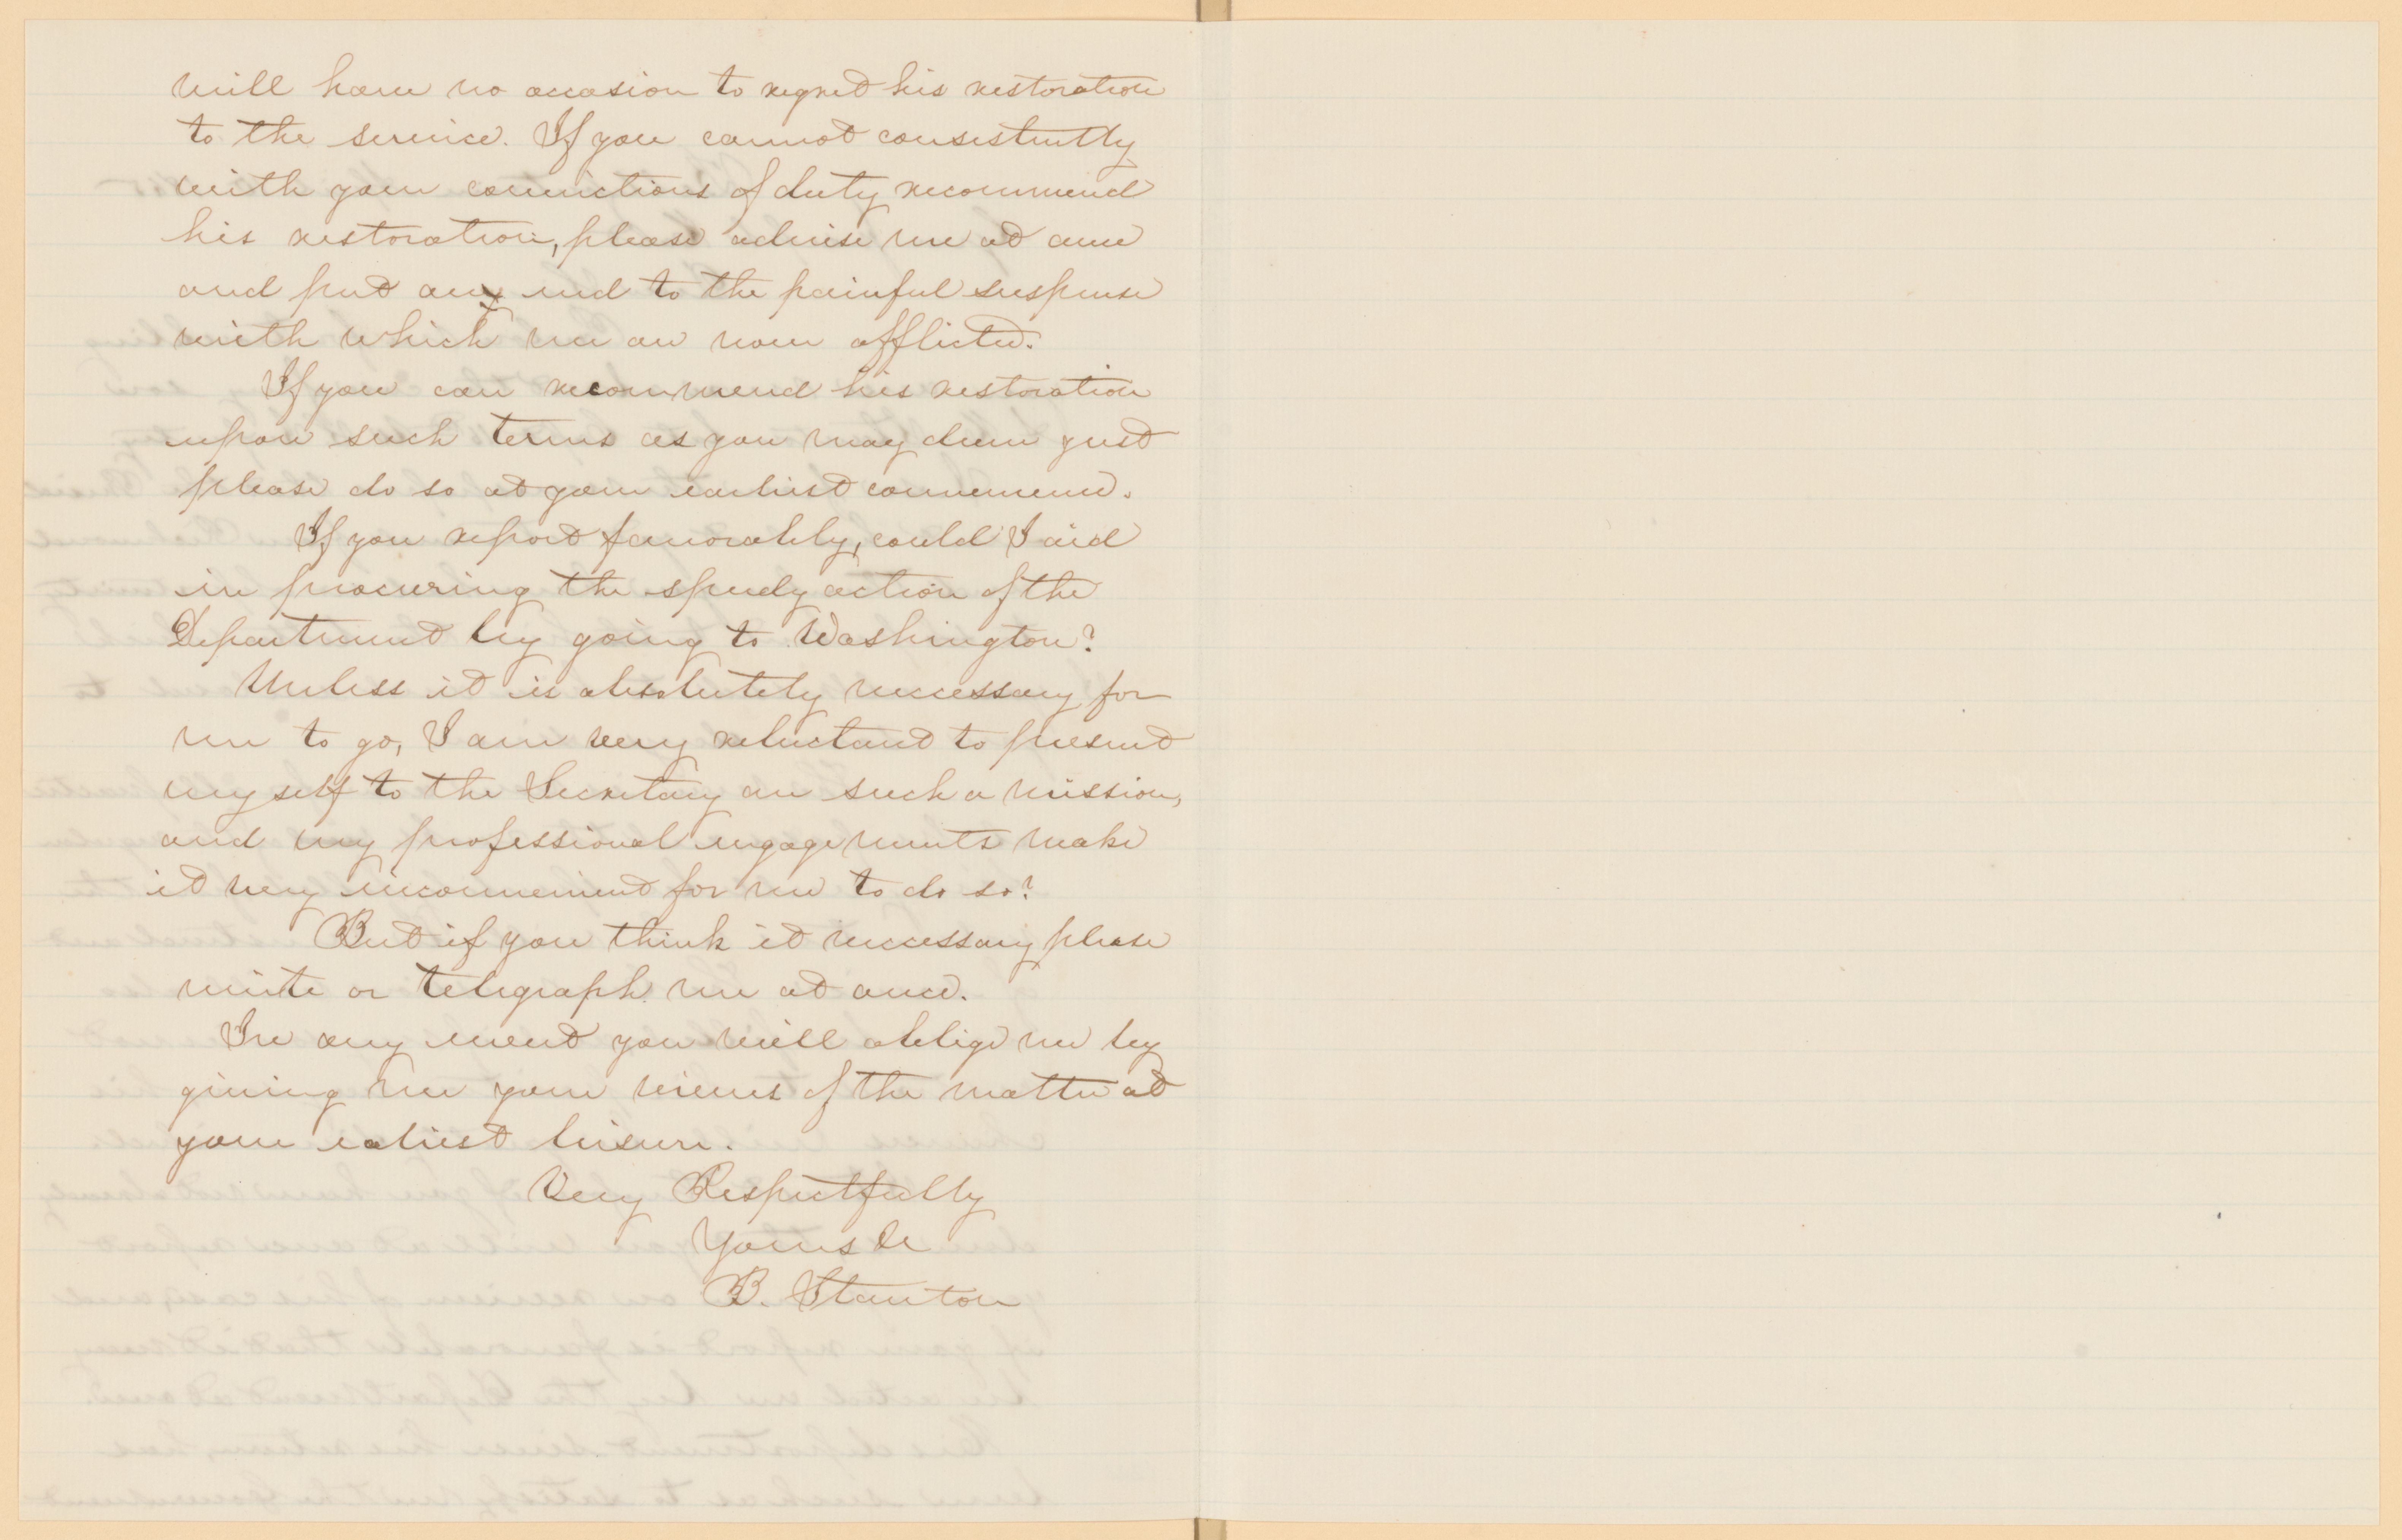 will have no occasion to regret his restoration
to the service. If you cannot consistently
with your convictions of duty recommend
his restoration, please advise me at once
and put an end to the painful suspense
with which we are now afflicted.
If you can recommend his restoration
upon such terms as you may deem just
please do so at your earliest convenience.
If you report favorably, could I aid
in procuring the speedy action of the
Department by going to Washington?
Unless it is absolutely necessary for
me to go, I am very reluctant to present
myself to the Secretary on such a mission,
and my professional engagements make
it very inconvenient for me to do so?
But if you think it necessary please
write or telegraph me at once.
In any event you will oblige me by
giving me your views of the matter at
your ealiest leisure.
Very Respectfully
Yours &c
B. Stanton